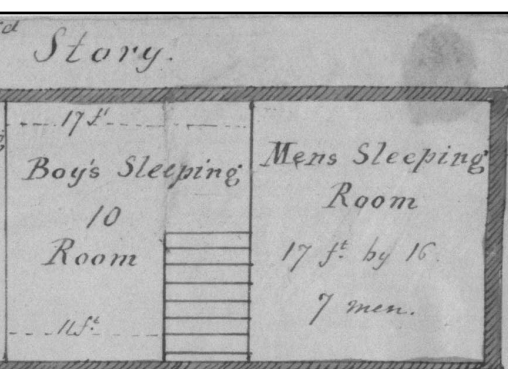 Story.
17 ft
Boy's Sleeping
10
Room
11 ft.
Mens Sleeping
Room
17 ft. by 16.
7 men.